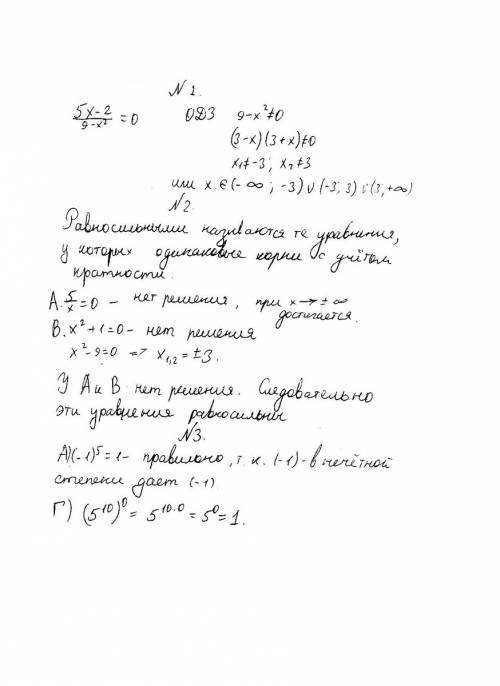 N 1.
5x-2/9-x² = 0 ОДЗ 9-x²≠0
(3-x)(3+x)≠0
x₁≠-3; x₂≠3
или x ∈(-∞; -3)∪(-3; 3)∪(3; +∞)
N2.
Равносильными называются те уравнения,
у которых одинаковые корни с учётом
кратности.
А. 5/x=0 - нет решения, при x→±∞
достигается.
В. x²+1=0 - нет решения
x²-9=0 => x₁,₂=±3.
У А и В нет решения. Следовательно
эти уравнения равносильны
N3.
А)(-1)⁵=1- правильно, т.к. (-1)-в нечётной
степени дает (-1)
Г) (5¹⁰)⁰= 5¹⁰·⁰=5⁰=1.